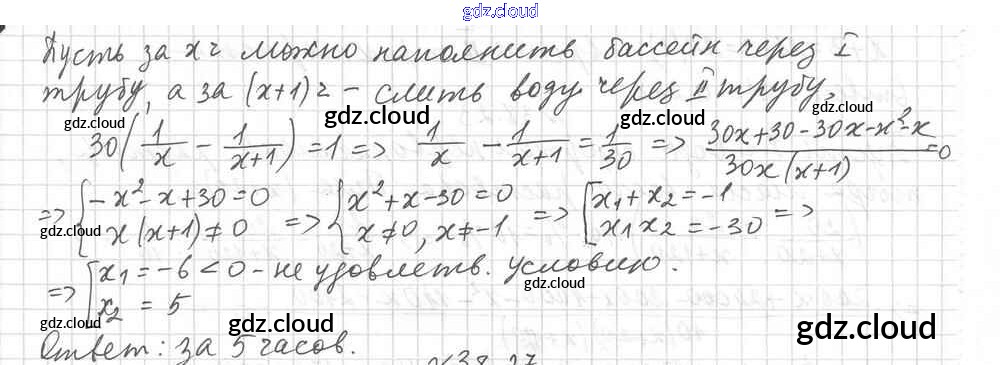 gdz.cloud
Пусть за x ч можно наполнить бассейн через I
трубу, а за (x+1) ч – слить воду через II трубу.
gdz.cloud gdz.cloud gdz.cloud
30(1/x - 1/(x+1)) = 1 => 1/x - 1/(x+1) = 1/30 => (30x+30-30x-x²-x)/(30x(x+1)) = 0
=> { -x²-x+30=0 => { x²+x-30=0 => [ x₁+x₂=-1
x(x+1)≠0 x≠0, x≠-1 x₁x₂=-30 =>
gdz.cloud gdz.cloud gdz.cloud
=> [ x₁=-6<0 - не удовлетв. условию.
x₂ = 5
gdz.cloud gdz.cloud gdz.cloud gdz.cloud
Ответ: за 5 часов.